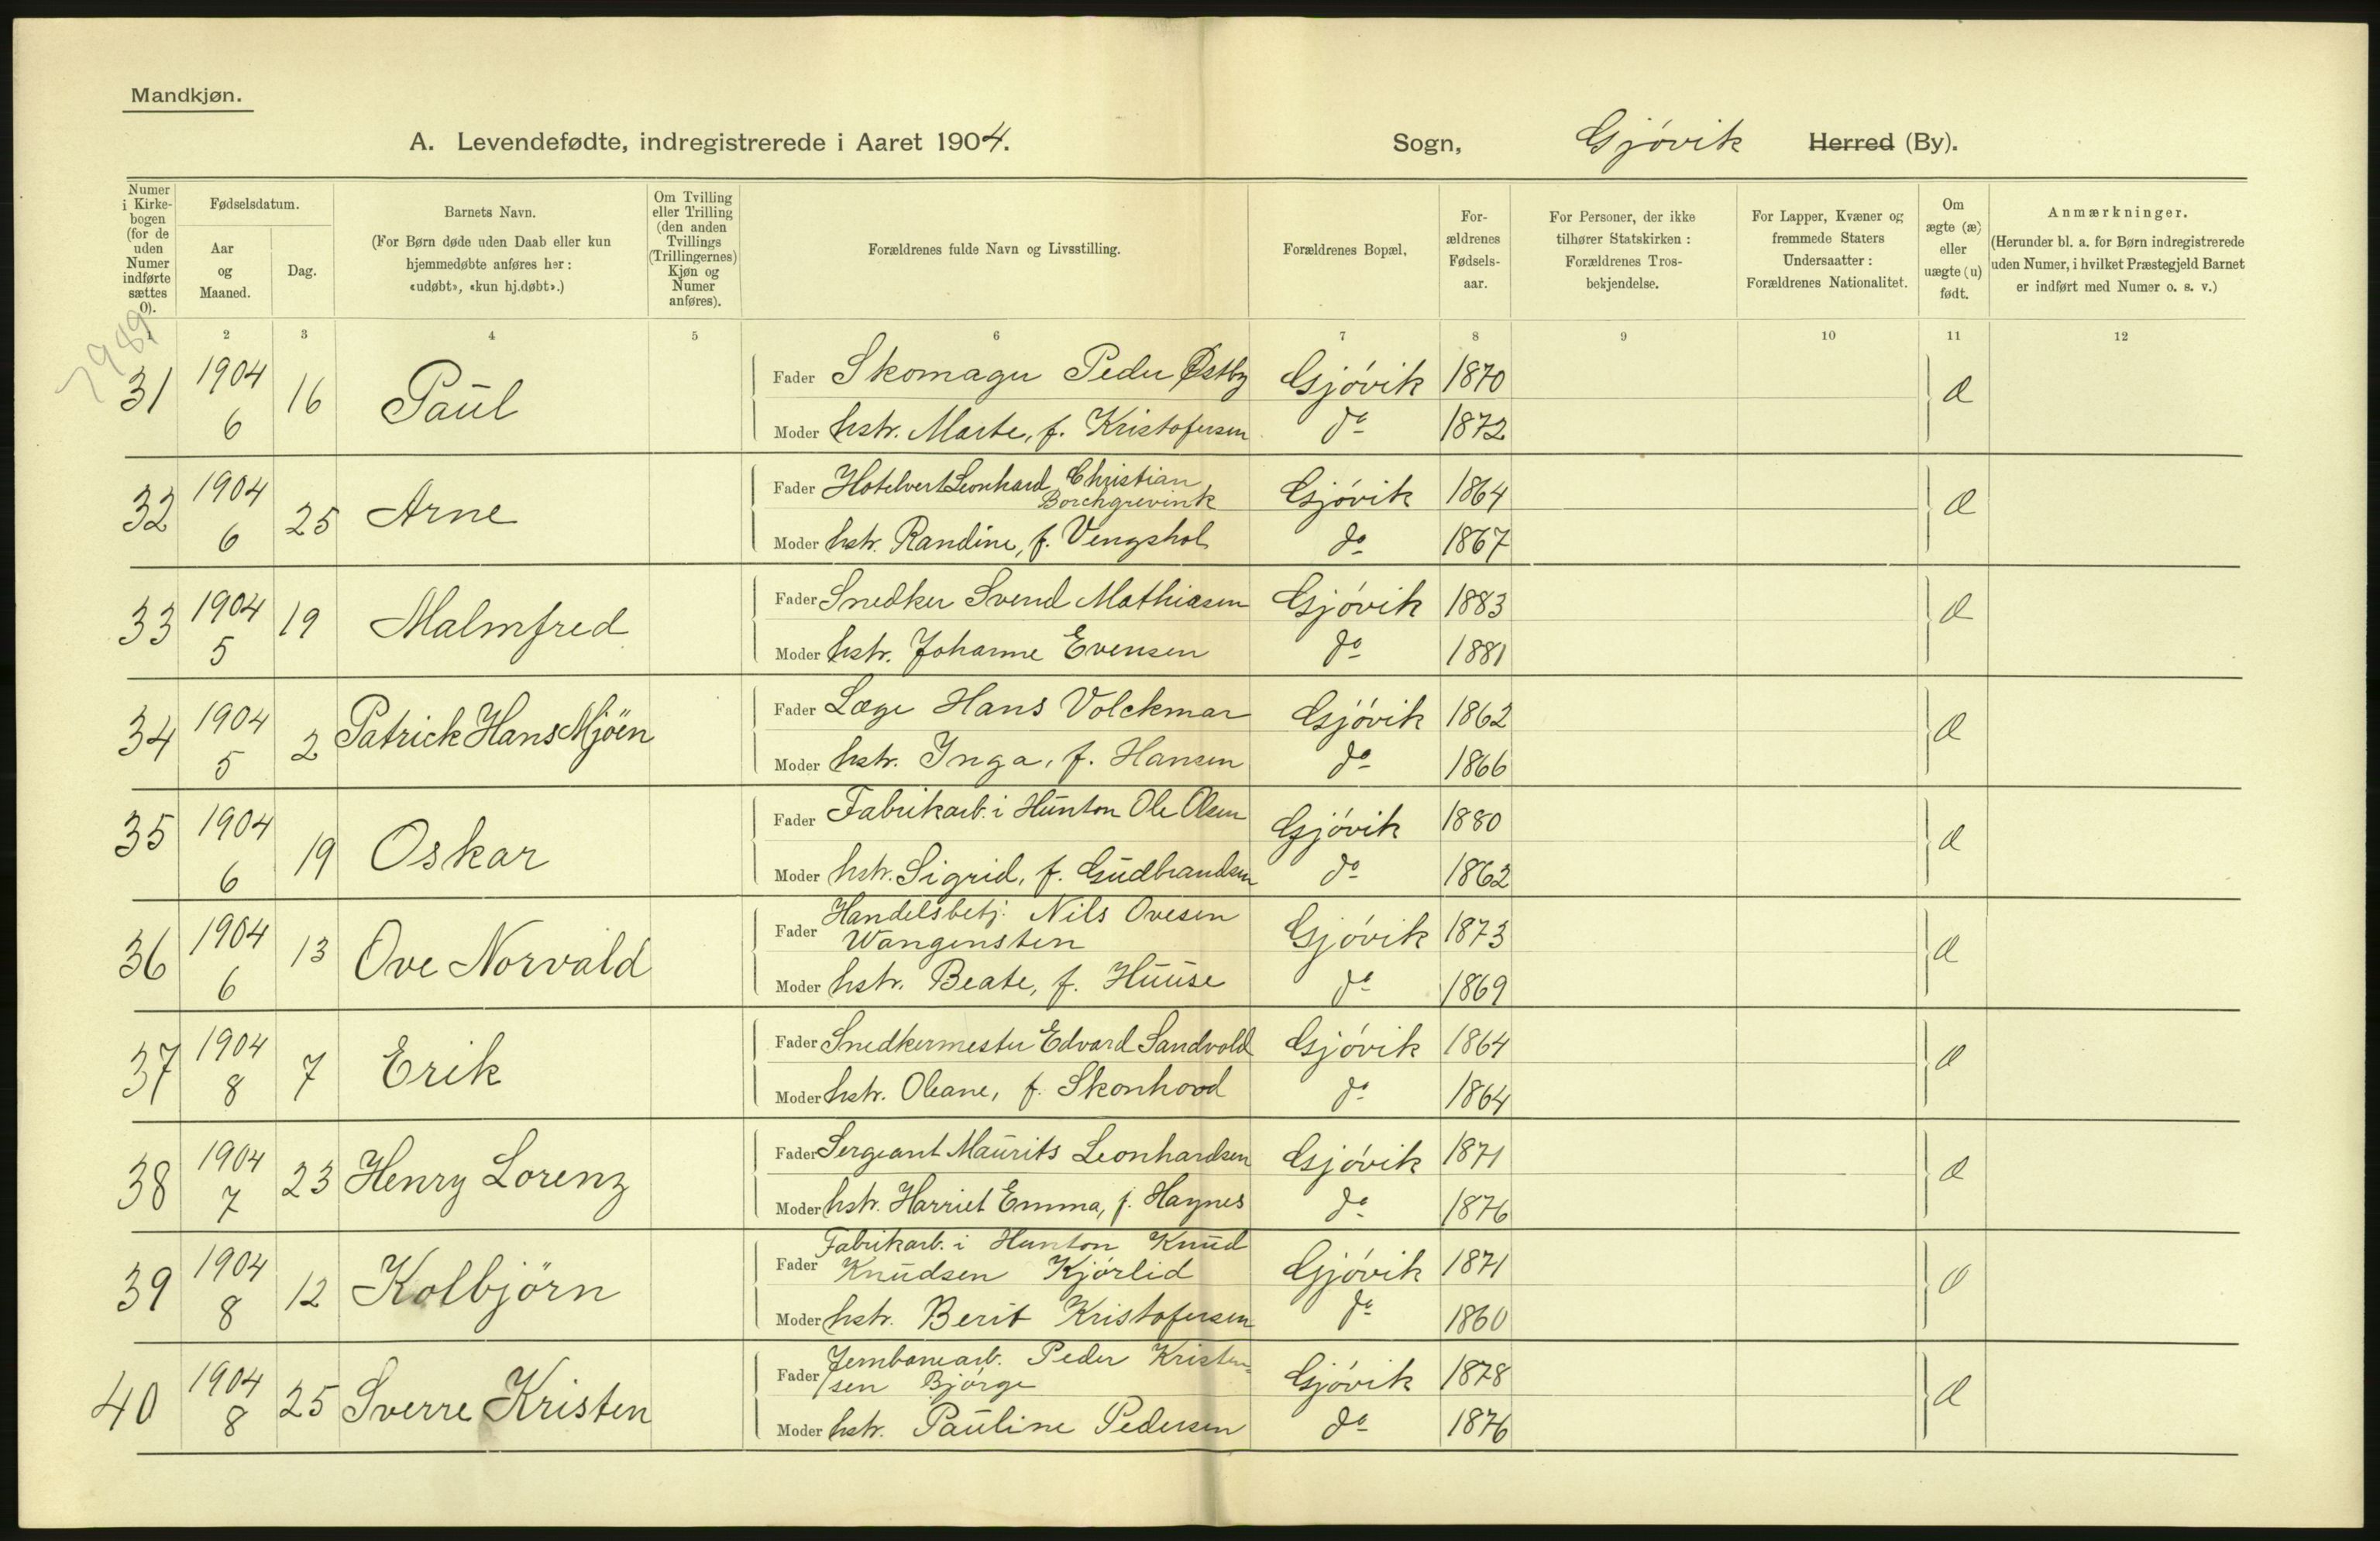 Mandkjøn.
A. Levendefødte, indregistrerede i Aaret 1904. Sogn, Gjövik Herred (By).
Numer i Kirkebogen (for de uden Numer indførte sættes 0).
Fødselsdatum.
Aar og Maaned.
Dag.
Barnets Navn.
(For Børn døde uden Daab eller kun hjemmedøbte anføres her: «udøbt», «kun hj.døbt».)
Om Tvilling eller Trilling (den anden Tvillings (Trillingernes) Kjøn og Numer anføres).
Forældrenes fulde Navn og Livsstilling.
Forældrenes Bopæl,
For-ældrenes Fødsels-aar.
For Personer, der ikke tilhører Statskirken: Forældrenes Tros-bekjendelse.
For Lapper, Kvæner og fremmede Staters Undersaatter: Forældrenes Nationalitet.
Om ægte (æ) eller uægte (u) født.
Anmærkninger.
(Herunder bl. a. for Børn indregistrerede uden Numer, i hvilket Præstegjeld Barnet er indført med Numer o. s. v.)
1 2 3 4 5 6 7 8 9 10 11 12
31 1904 6 16 Paul Fader Skomager Peder Østby Gjövik 1870 æ
Moder hstr. Marte, f. Kristofersen do 1872
32 1904 6 25 Arne Fader Hotelvert Leonhard Christian Borchgrevink Gjövik 1864 æ
Moder hstr. Randine, f. Vengshol do 1867
33 1904 5 19 Malmfred Fader Snedker Svend Mathiasen Gjövik 1883 æ
Moder hstr. Johanne Evensen do 1881
34 1904 5 2 Patrick Hans Mjöen Fader Læge Hans Volckmar Gjövik 1862 æ
Moder hstr. Inga, f. Hansen do 1866
35 1904 6 19 Oskar Fader Fabrikarb. i Hunton Ole Olsen Gjövik 1880 æ
Moder hstr. Sigrid, f. Gudbrandsen do 1862
36 1904 6 13 Ove Norvald Fader Handelsbetj. Nils Ovesen Wangensten Gjövik 1873 æ
Moder hstr. Beate, f. Huuse do 1869
37 1904 8 7 Erik Fader Snedkermester Edvard Sandvold Gjövik 1864 æ
Moder hstr. Oleane, f. Skonhovd do 1864
38 1904 7 23 Henry Lorenz Fader Sergeant Maurits Leonhardsen Gjövik 1871 æ
Moder hstr. Harriet Emma, f. Haynes do 1876
39 1904 8 12 Kolbjörn Fader Fabrikarb. i Hunton Knud Knudsen Kjörlid Gjövik 1871 æ
Moder hstr. Berit Kristofersen do 1860
40 1904 8 25 Sverre Kristen Fader Jernbanearb. Peder Kristensen Bjørge Gjövik 1878 æ
Moder hstr. Pauline Pedersen do 1876